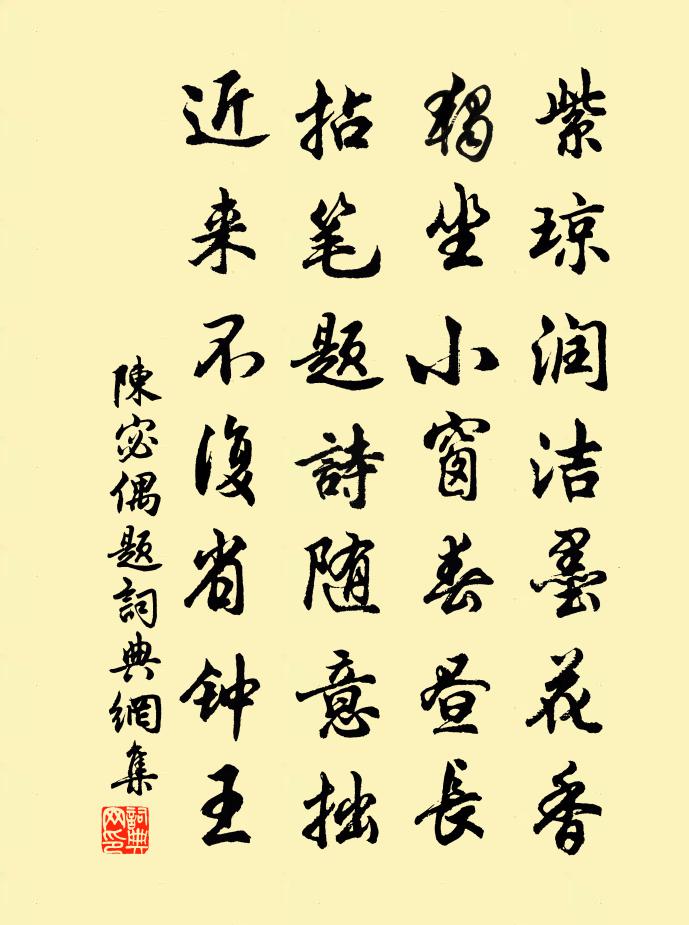 紫琼润洁墨花香
独坐小窗春昼長
拈笔题詩随意拙
近来不復省钟王
陳宓偶题詞典網集
詞典网印